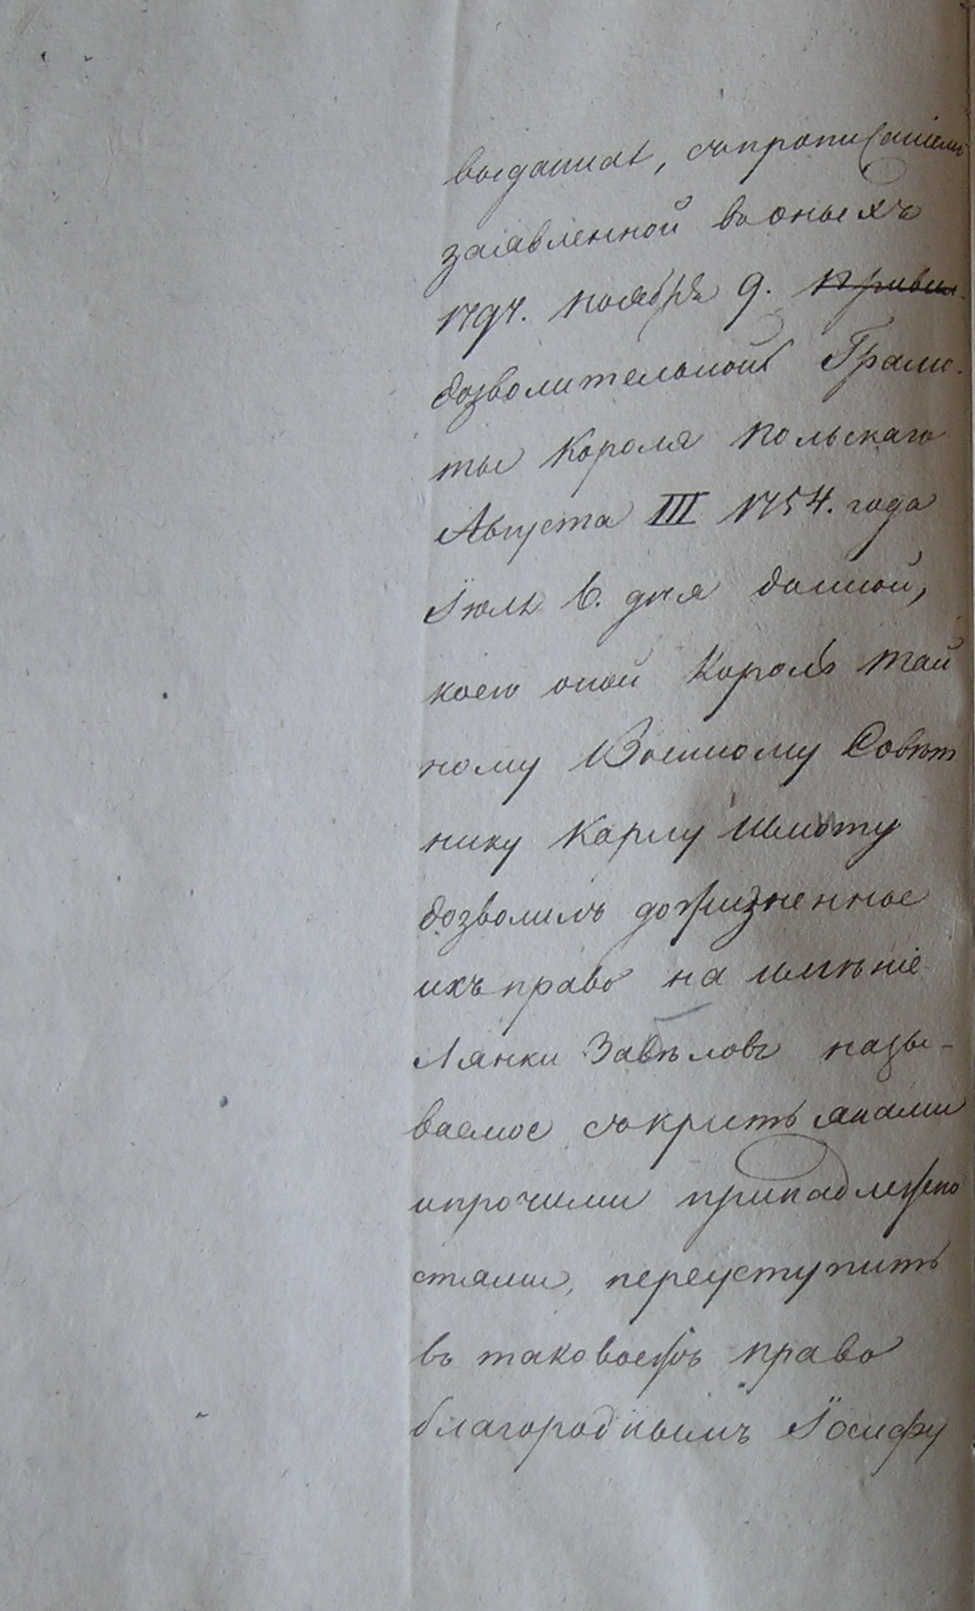 выданная, съ прописаніемъ
заявленной въ оныхъ
1797. Ноября 9.
дозволительной Грамо-
ты Короля Польскаго
Августа III 1754. года
Іюля 6. дня данной,
коею оной Король Тай
ному Военному Совѣт
нику Карлу
дозволилъ дожизненное
ихъ право на имѣніе
Лянки Забѣловъ назы-
ваемое съ крестьянами
и прочими принадлежно
стями, переуступить
въ таковое жъ право
благороднымъ Іосифу